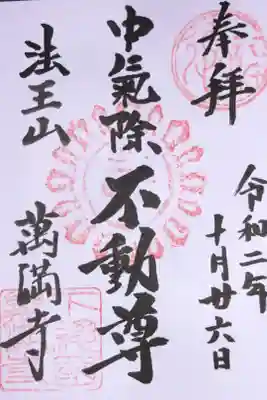 奉拝
令和二年
十月廿六日
中氣除
不動尊
法王山
萬満寺